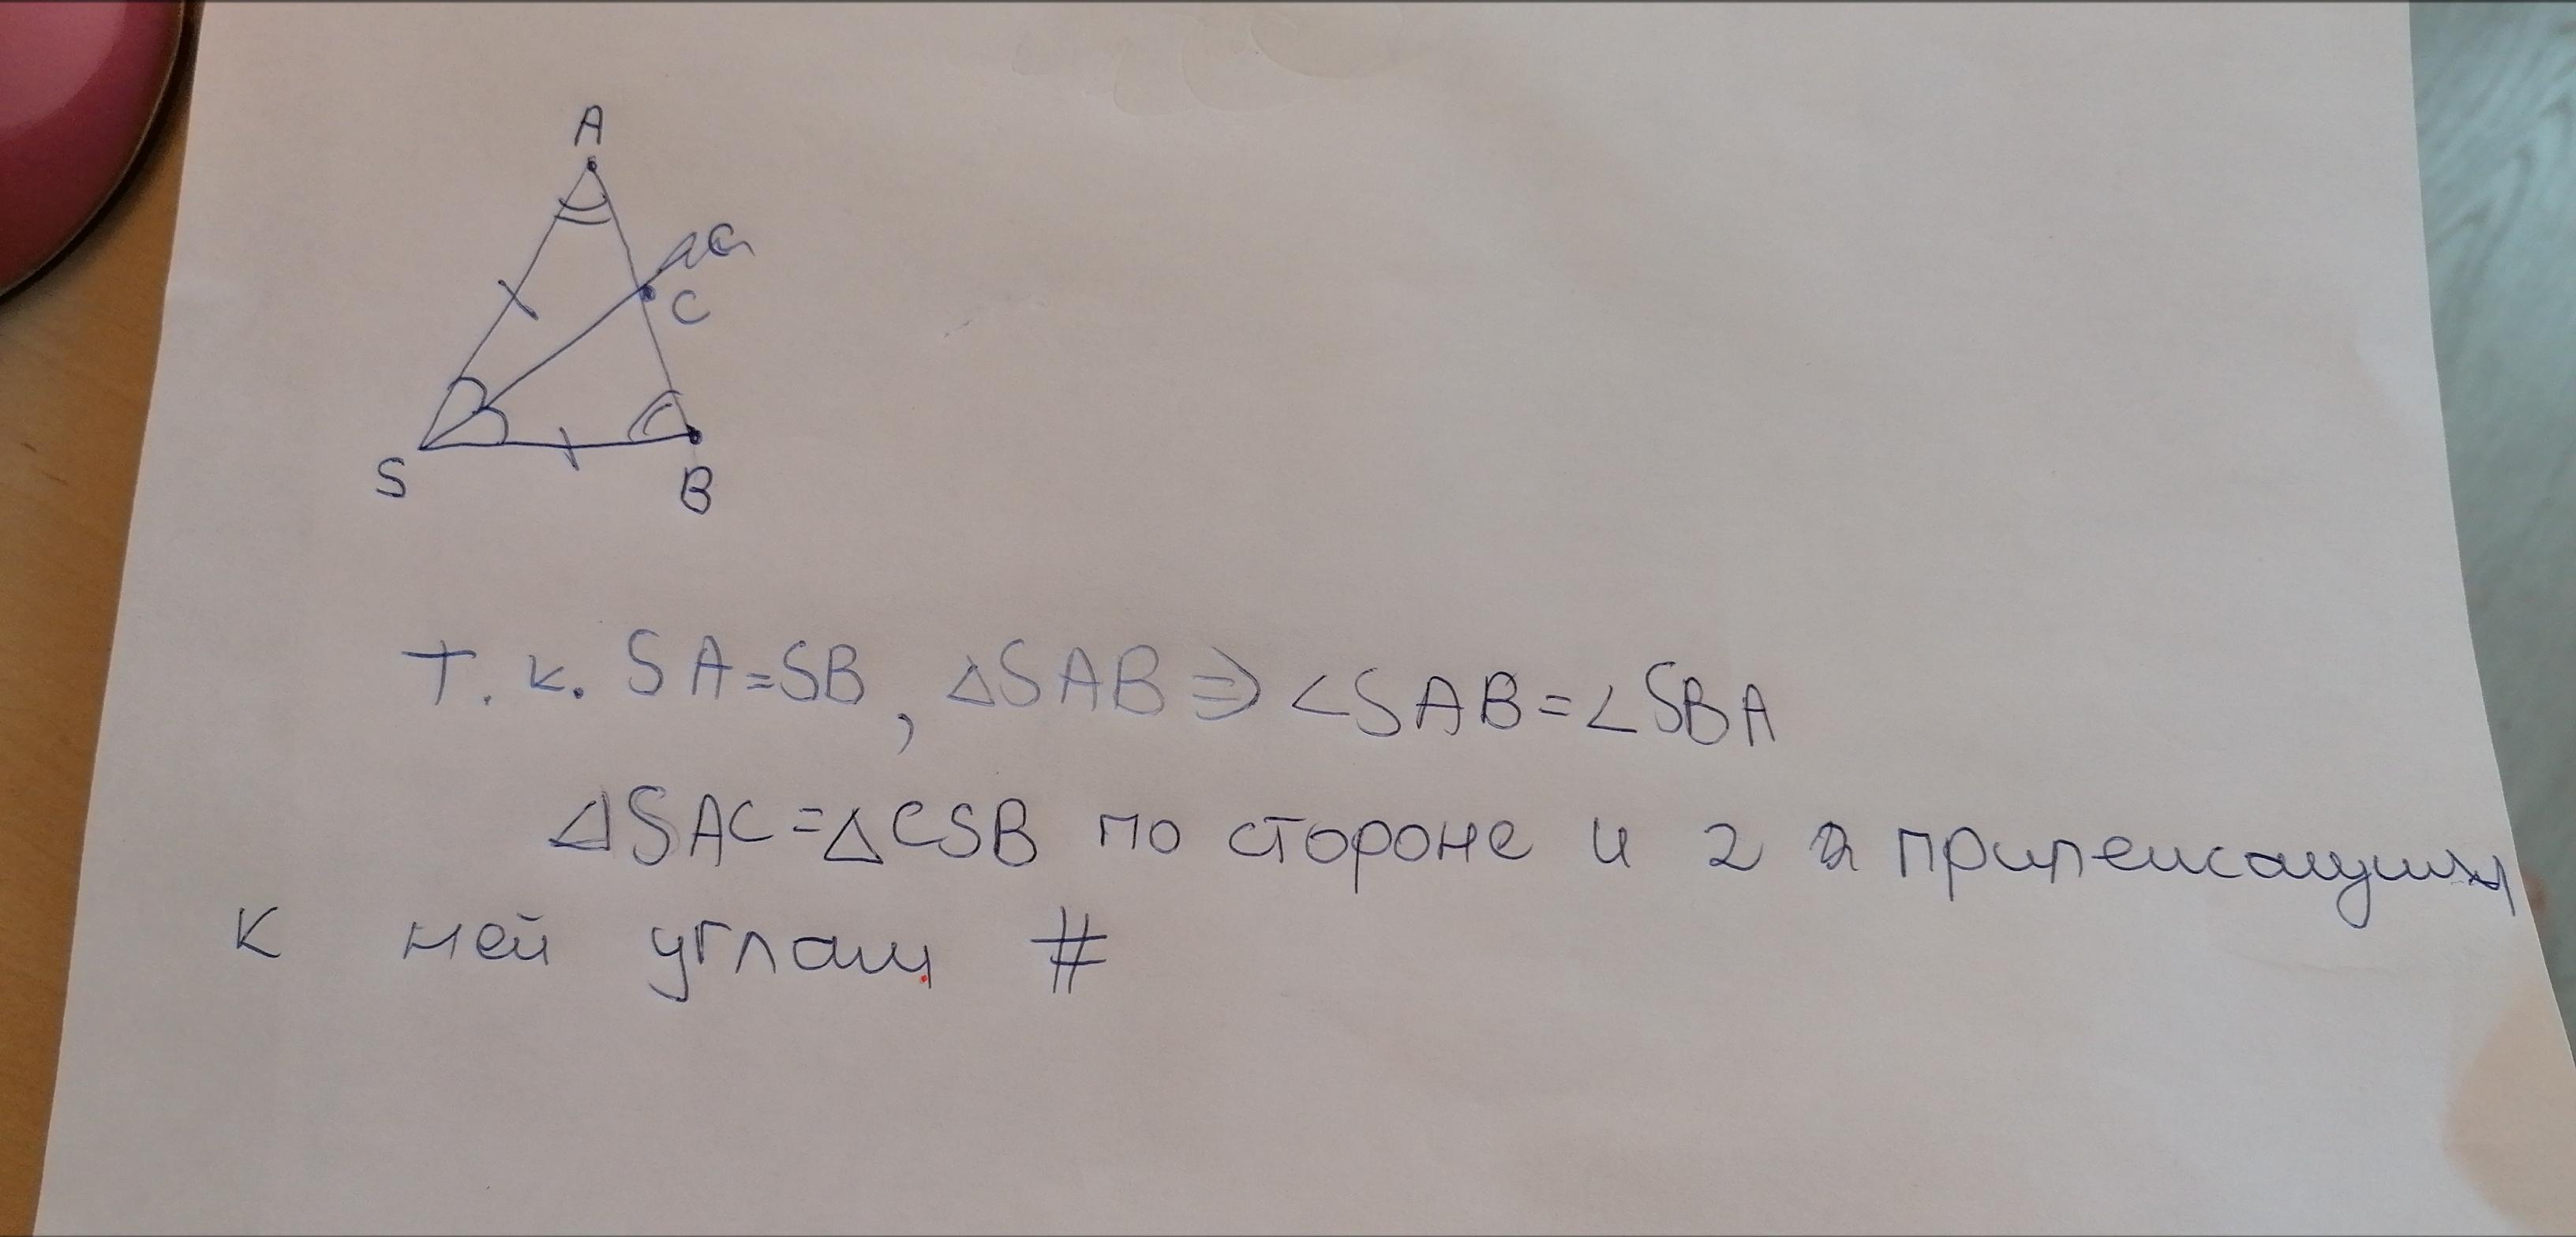 A
C
S
B
т.к. SA=SB, △SAB ⇒ ∠SAB=∠SBA
△SAC=△CSB по стороне и 2 прилежащим
к ней углам #